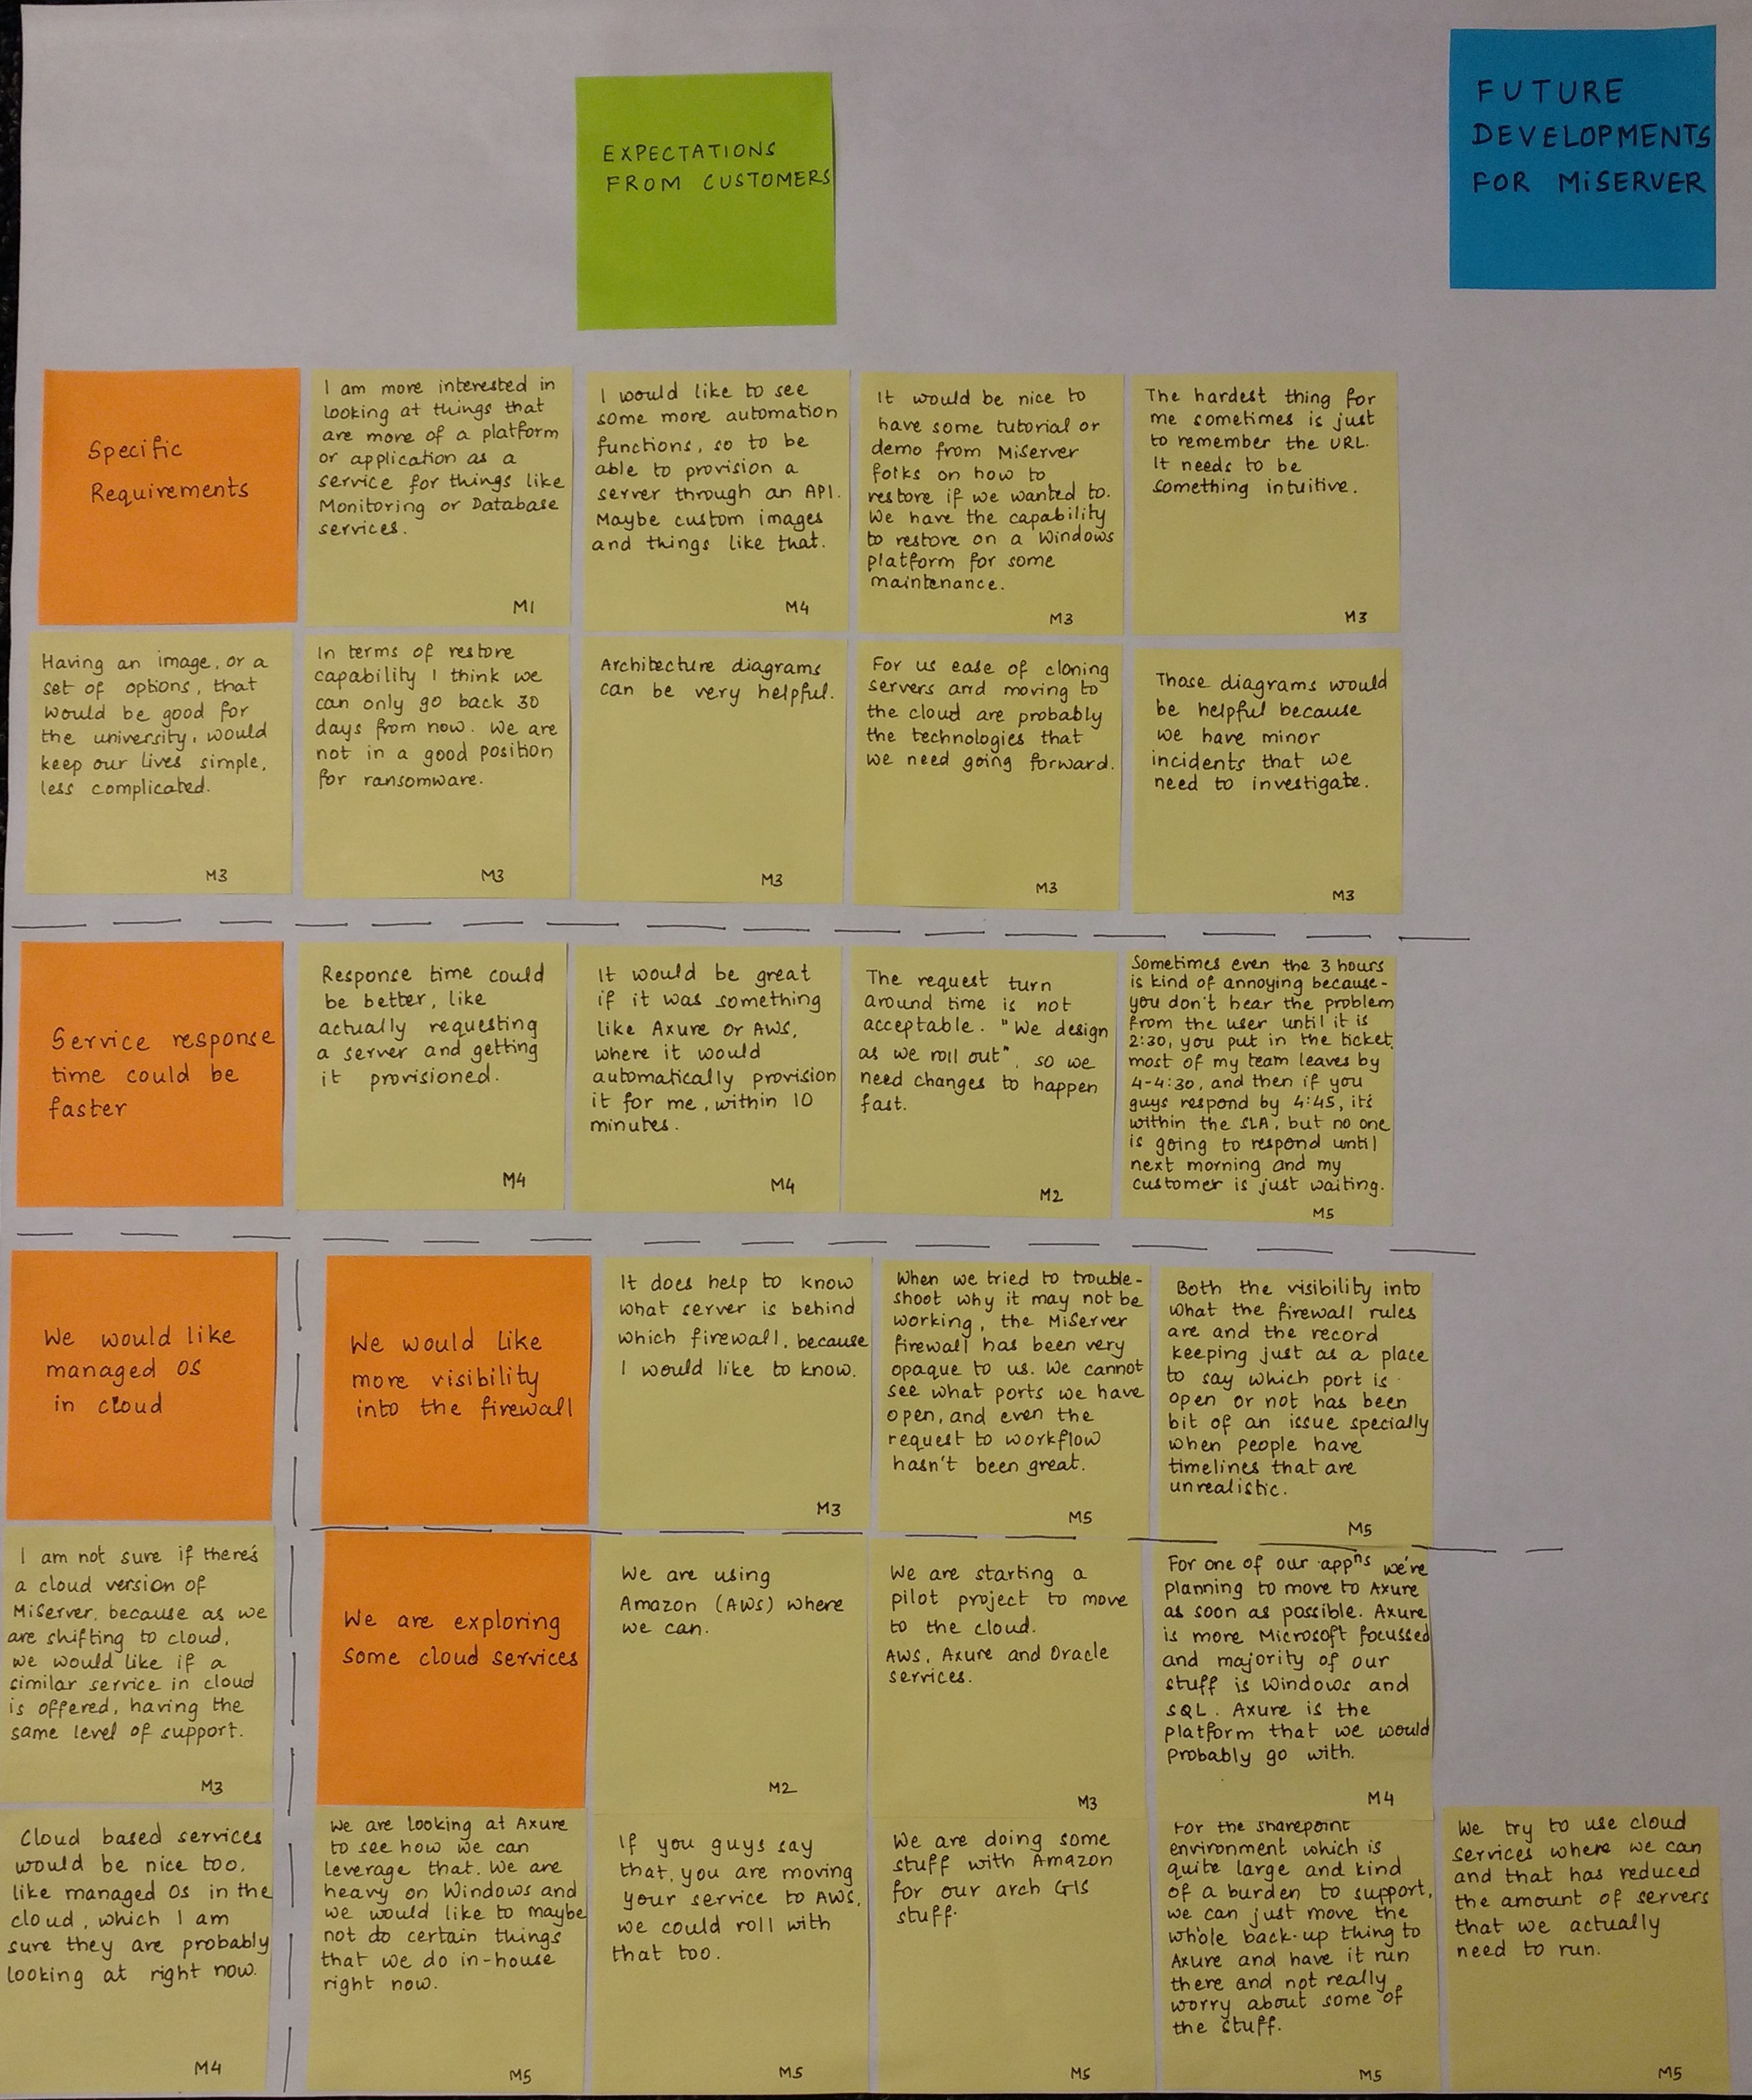 EXPECTATIONS
FROM CUSTOMERS
FUTURE
DEVELOPMENTS
FOR MiSERVER
Specific
Requirements
I am more interested in
looking at things that
are more of a platform
or application as a
service for things like
Monitoring or Database
services.
M1
I would like to see
some more automation
functions, so to be
able to provision a
server through an API.
Maybe custom images
and things like that.
M4
It would be nice to
have some tutorial or
demo from MiServer
folks on how to
restore if we wanted to.
We have the capability
to restore on a Windows
platform for some
maintenance.
M3
The hardest thing for
me sometimes is just
to remember the URL.
It needs to be
something intuitive.
M3
Having an image, or a
set of options, that
would be good for
the university, would
keep our lives simple,
less complicated.
M3
In terms of restore
capability I think we
can only go back 30
days from now. We are
not in a good position
for ransomware.
M3
Architecture diagrams
can be very helpful.
M3
For us ease of cloning
servers and moving to
the cloud are probably
the technologies that
we need going forward.
M3
Those diagrams would
be helpful because
we have minor
incidents that we
need to investigate.
M3
Service response
time could be
faster
Response time could
be better, like
actually requesting
a server and getting
it provisioned.
M4
It would be great
if it was something
like Axure or AWS,
where it would
automatically provision
it for me, within 10
minutes.
M4
The request turn
around time is not
acceptable. "We design
as we roll out", so we
need changes to happen
fast.
M2
Sometimes even the 3 hours
is kind of annoying because-
you don't hear the problem
from the user until it is
2:30, you put in the ticket,
most of my team leaves by
4-4:30, and then if you
guys respond by 4:45, it's
within the SLA, but no one
is going to respond until
next morning and my
customer is just waiting.
M5
We would like
managed OS
in cloud
We would like
more visibility
into the firewall
It does help to know
what server is behind
which firewall, because
I would like to know.
M3
When we tried to trouble-
shoot why it may not be
working, the MiServer
firewall has been very
opaque to us. We cannot
see what ports we have
open, and even the
request to workflow
hasn't been great.
M5
Both the visibility into
what the firewall rules
are and the record
keeping just as a place
to say which port is
open or not has been
bit of an issue specially
when people have
timelines that are
unrealistic.
M5
I am not sure if there's
a cloud version of
MiServer, because as we
are shifting to cloud,
we would like if a
similar service in cloud
is offered, having the
same level of support.
M3
We are exploring
some cloud services
We are using
Amazon (AWS) where
we can.
M2
We are starting a
pilot project to move
to the cloud.
AWS, Axure and Oracle
services.
M3
For one of our appns we're
planning to move to Axure
as soon as possible. Axure
is more Microsoft focussed
and majority of our
stuff is Windows and
SQL. Axure is the
platform that we would
probably go with.
M4
Cloud based services
would be nice too,
like managed OS in the
cloud, which I am
sure they are probably
looking at right now.
M4
We are looking at Axure
to see how we can
leverage that. We are
heavy on Windows and
we would like to maybe
not do certain things
that we do in-house
right now.
M5
If you guys say
that, you are moving
your service to AWS,
we could roll with
that too.
M5
We are doing some
stuff with Amazon
for our arch GIS
stuff.
M5
For the sharepoint
environment which is
quite large and kind
of a burden to support,
we can just move the
whole back-up thing to
Axure and have it run
there and not really
worry about some of
the stuff.
M5
We try to use cloud
services where we can
and that has reduced
the amount of servers
that we actually
need to run.
M5